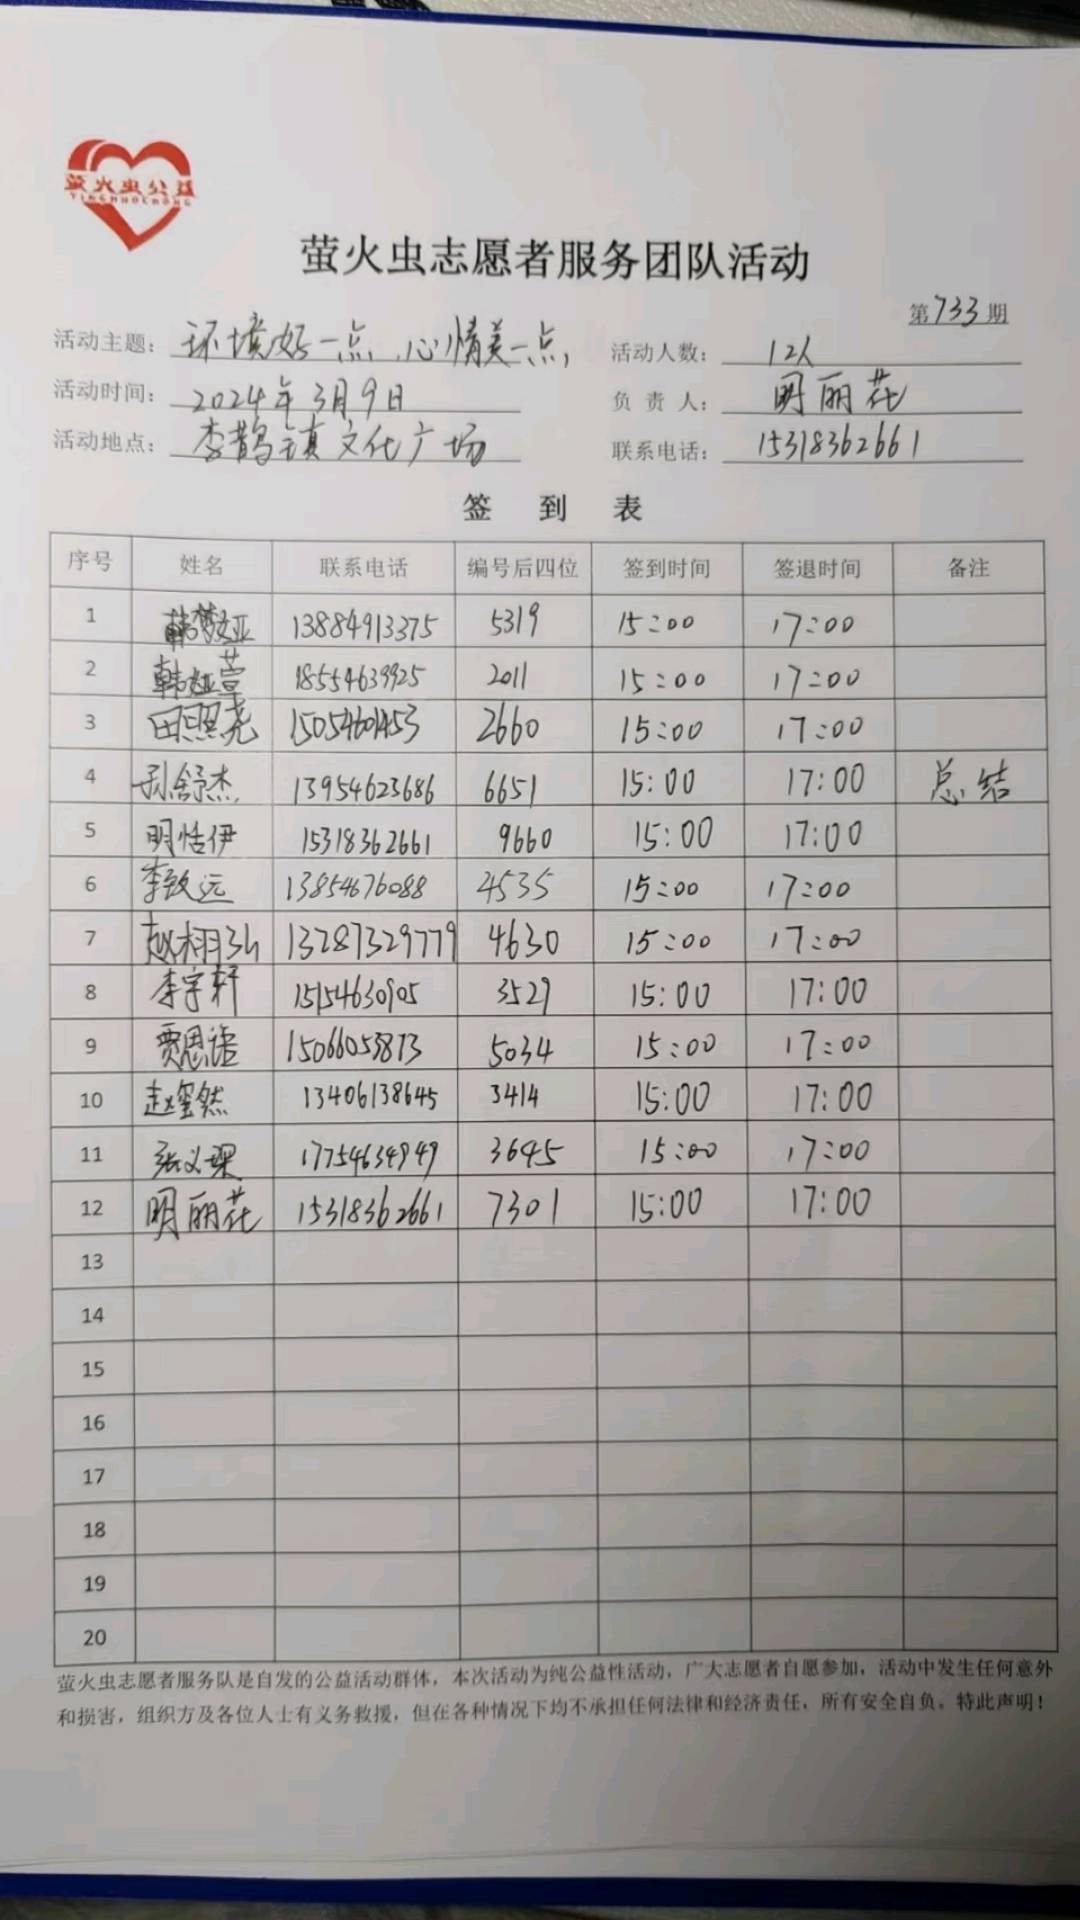 萤火虫公益
YINGHUOCHONG
萤火虫志愿者服务团队活动
第733期
活动主题：环境好一点,心情美一点, 活动人数：12人
活动时间：2024年3月9日 负责人：明丽花
活动地点：李鹊镇文化广场 联系电话：15318362661
签到表
序号 姓名 联系电话 编号后四位 签到时间 签退时间 备注
1 韩梦亚 13884913375 5319 15:00 17:00
2 韩娅萱 18554639925 2011 15:00 17:00
3 田照尧 15054601453 2660 15:00 17:00
4 孙舒杰 13954623686 6651 15:00 17:00 总结
5 明恬伊 15318362661 9660 15:00 17:00
6 李致远 13854676088 4535 15:00 17:00
7 赵栩 13287329779 4630 15:00 17:00
8 李宇轩 15154630905 3529 15:00 17:00
9 贾思语 15066053873 5034 15:00 17:00
10 赵 然 13406138645 3414 15:00 17:00
11 张义琛 17754634949 3645 15:00 17:00
12 明丽花 15318362661 7301 15:00 17:00
13
14
15
16
17
18
19
20
萤火虫志愿者服务队是自发的公益活动群体，本次活动为纯公益性活动，广大志愿者自愿参加，活动中发生任何意外
和损害，组织方及各位人士有义务救援，但在各种情况下均不承担任何法律和经济责任，所有安全自负，特此声明！